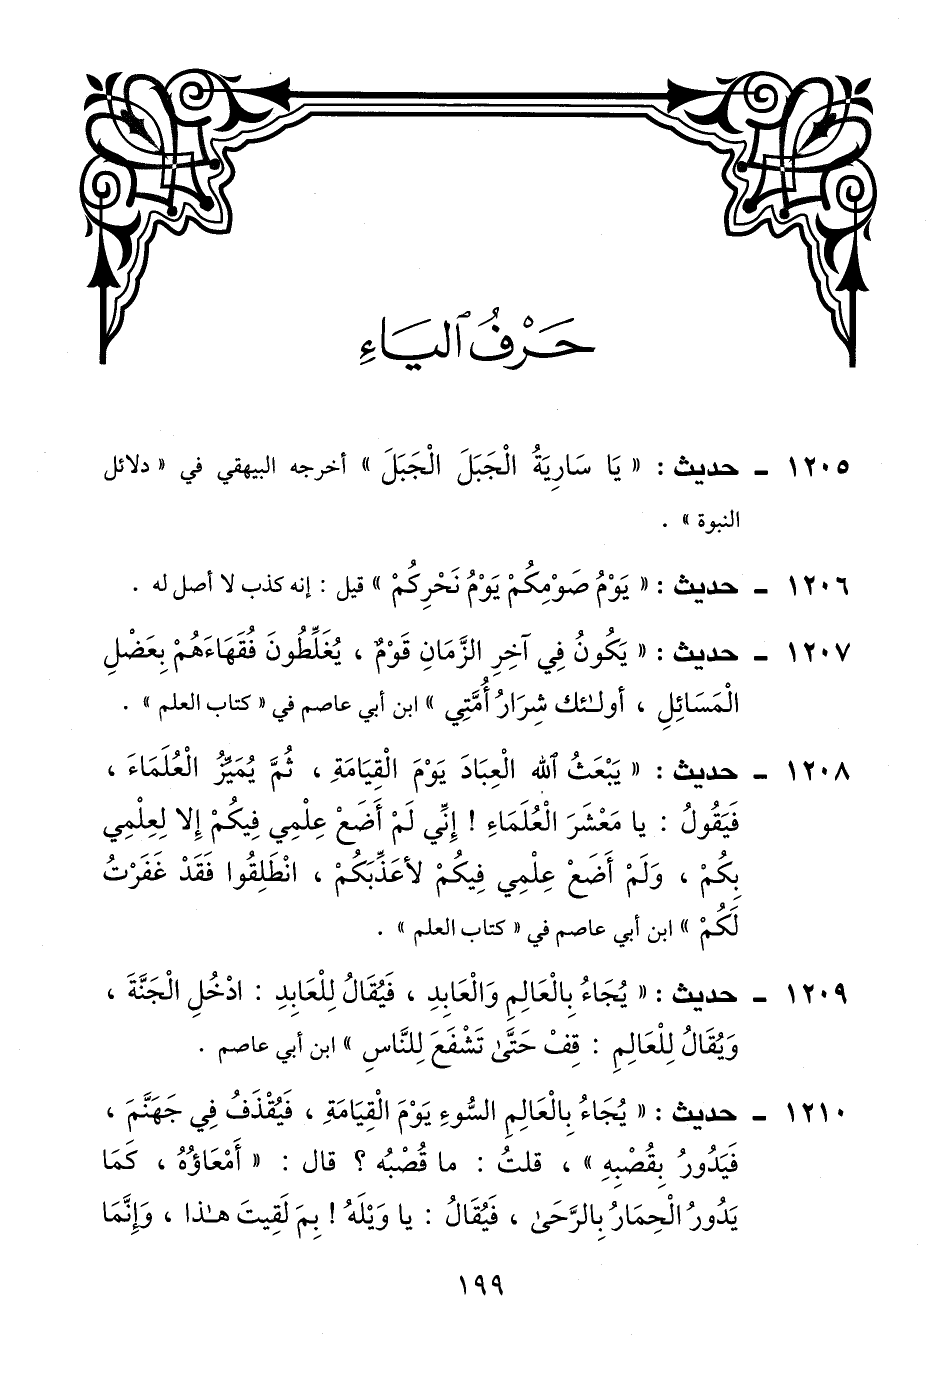 حَرْفُ ٱليَاءِ
١٢٠٥ ـ حديث : « يَا سَارِيَةُ الْجَبَلَ الْجَبَلَ » أخرجه البيهقي في « دلائل
النبوة » .
١٢٠٦ ـ حديث : « يَوْمُ صَوْمِكُمْ يَوْمُ نَحْرِكُمْ » قيل : إنه كذب لا أصل له .
١٢٠٧ ـ حديث : « يَكُونُ فِي آخِرِ الزَّمَانِ قَوْمٌ ، يُغَلِّطُونَ فُقَهَاءَهُمْ بِعَضْلِ
الْمَسَائِلِ ، أولـٰئك شِرَارُ أُمَّتِي » ابن أبي عاصم في « كتاب العلم » .
١٢٠٨ ـ حديث : « يَبْعَثُ ٱلله الْعِبَادَ يَوْمَ الْقِيَامَةِ ، ثُمَّ يُمَيِّزُ الْعُلَمَاءَ ،
فَيَقُولُ : يا مَعْشَرَ الْعُلَمَاءِ ! إِنِّي لَمْ أَضَعْ عِلْمِي فِيكُمْ إِلا لِعِلْمِي
بِكُمْ ، وَلَمْ أَضَعْ عِلْمِي فِيكُمْ لأعَذِّبَكُمْ ، انْطَلِقُوا فَقَدْ غَفَرْتُ
لَكُمْ » ابن أبي عاصم في « كتاب العلم » .
١٢٠٩ ـ حديث : « يُجَاءُ بِالْعَالِمِ وَالْعَابِدِ ، فَيُقَالُ لِلْعَابِدِ : ادْخُلِ الْجَنَّةَ ،
وَيُقَالُ لِلْعَالِمِ : قِفْ حَتَّىٰ تَشْفَعَ لِلنَّاسِ » ابن أبي عاصم .
١٢١٠ ـ حديث : « يُجَاءُ بِالْعَالِمِ السُّوءِ يَوْمَ الْقِيَامَةِ ، فَيُقْذَفُ فِي جَهَنَّمَ ،
فَيَدُورُ بِقُصْبِهِ » ، قلتُ : ما قُصْبُه ؟ قال : « أَمْعَاؤُهُ ، كَمَا
يَدُورُ الْحِمَارُ بِالرَّحَىٰ ، فَيُقَالُ : يا وَيْلَهُ ! بِمَ لَقِيتَ هـٰذا ، وَإِنَّمَا
١٩٩